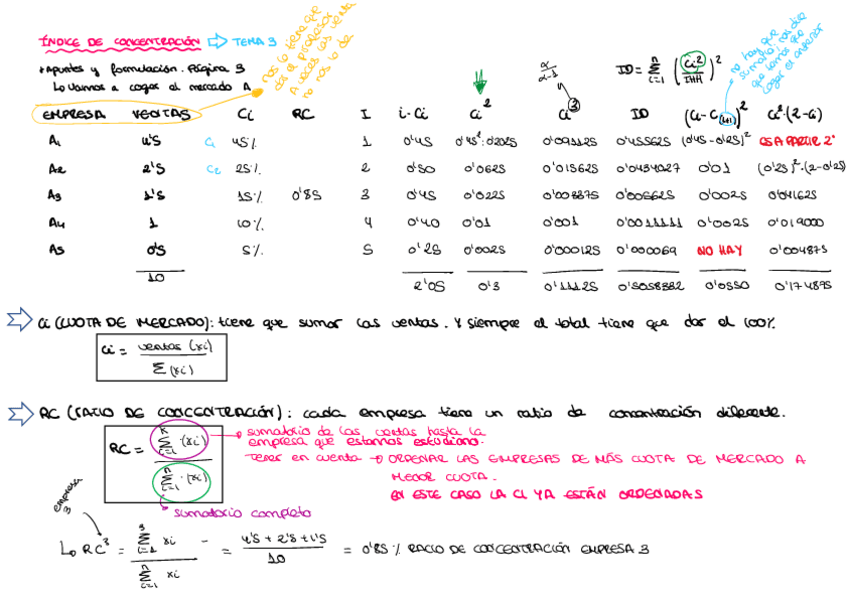 ÍNDICE DE CONCENTRACIÓN ⇨ TEMA 3
nos lo tiene que dar el profesor. A veces las venta no nos lo da
* Apuntes y formulación. Página 3
↳ Vamos a coger al mercado A
α/α-1
ID = Σ_{i=1}^{n} (Ci²/IHH)²
no hay que sumarlo, nos dice que temos que coger el anterior
EMPRESA VENTAS Ci RC I i·Ci Ci² Ci³ ID (Ci - C(i+1))² Ci²·(2-Ci)
A1 4'5 C1 45% 1 0'45 0'45²:0'2025 0'091125 0'455625 (0'45-0'25)² ES A PARTIR 2º
A2 2'5 C2 25% 2 0'50 0'0625 0'015625 0'0434027 0'01 (0'25)²·(2-0'25)
A3 1'5 15% 0'85 3 0'45 0'0225 0'003375 0'005625 0'0025 0'041625
A4 1 10% 4 0'40 0'01 0'001 0'0011111 0'0025 0'019000
A5 0'5 5% 5 0'25 0'0025 0'000125 0'000069 NO HAY 0'004875
10 2'05 0'3 0'11125 0'5058332 0'0550 0'174875
Ci (CUOTA DE MERCADO): tiene que sumar las ventas. Y siempre el total tiene que dar el 100%
Ci = ventas (xi) / Σ (xi)
RC (RATIO DE CONCENTRACIÓN): cada empresa tiene un ratio de concentración diferente.
RC = Σ_{i=1}^{K} (xi) / Σ_{i=1}^{n} (xi)
sumatorio de las ventas hasta la empresa que estamos estudiando.
tener en cuenta → ORDENAR LAS EMPRESAS DE MÁS CUOTA DE MERCADO A MENOR CUOTA.
EN ESTE CASO LA CI YA ESTÁN ORDENADAS
sumatorio completo
empresa 3
↳ RC³ = Σ_{i=1}^{3} xi / Σ_{i=1}^{n} xi = 4'5 + 2'5 + 1'5 / 10 = 0'85 % RACIO DE CONCENTRACIÓN EMPRESA 3